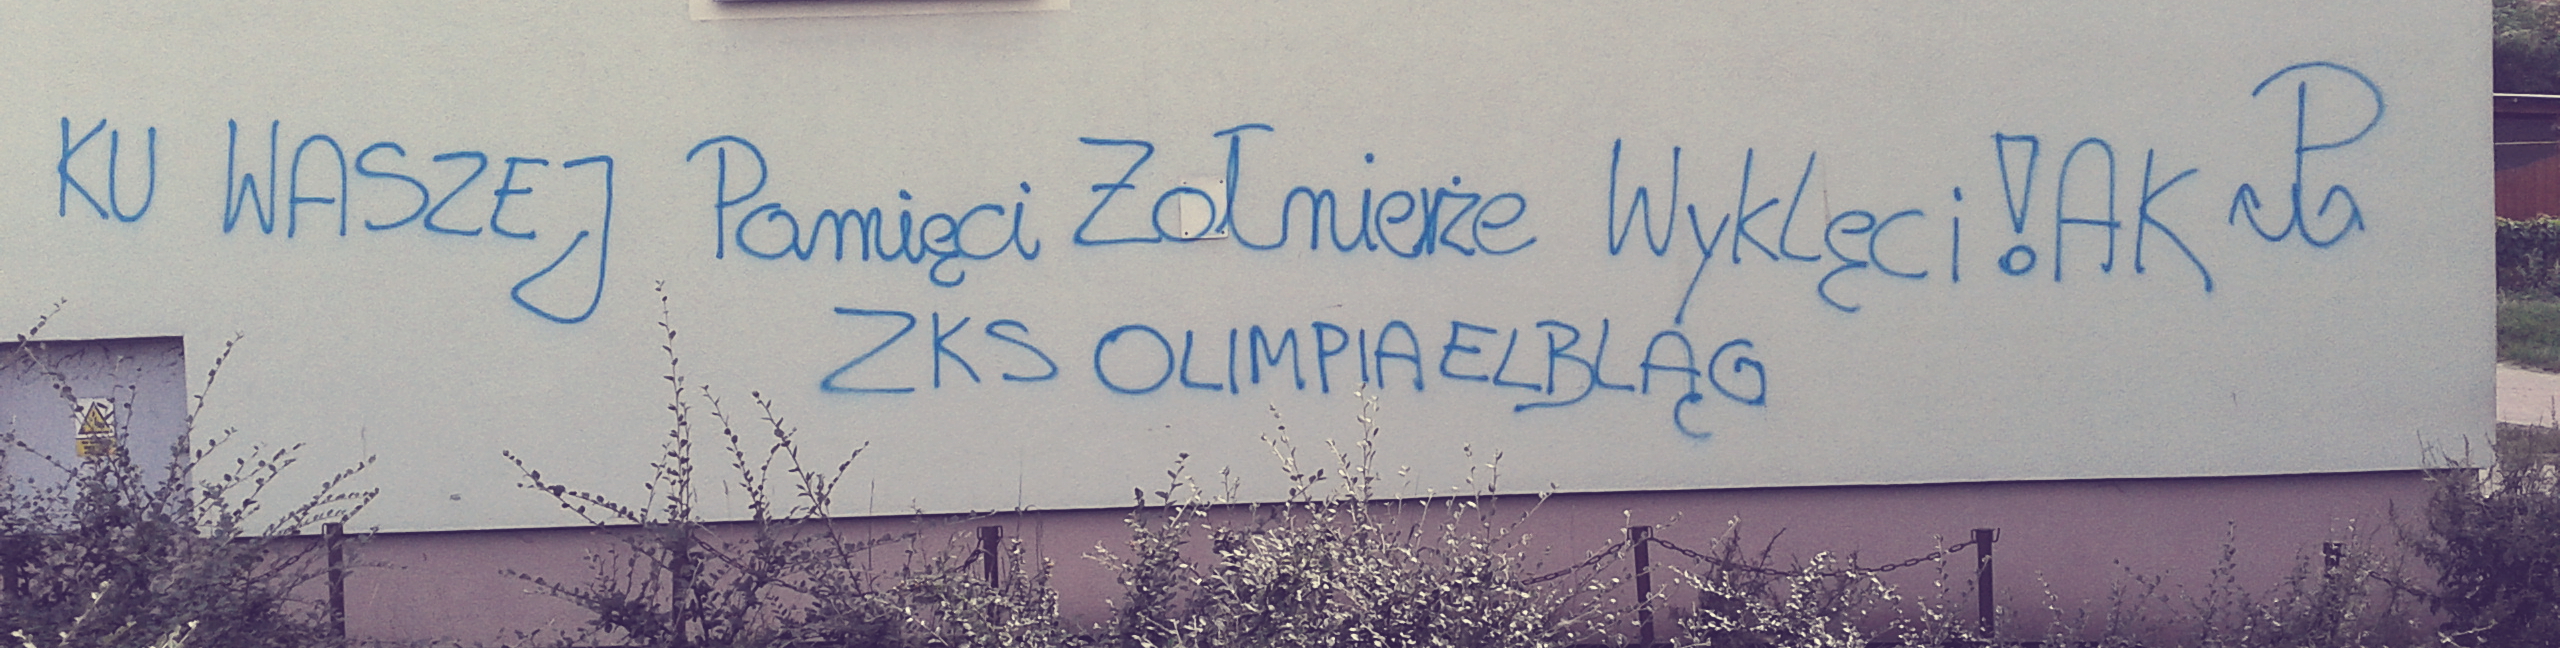 KU WASZEJ Pamięci Zołnierze Wyklęci! AK
ZKS OLIMPIA ELBLĄG